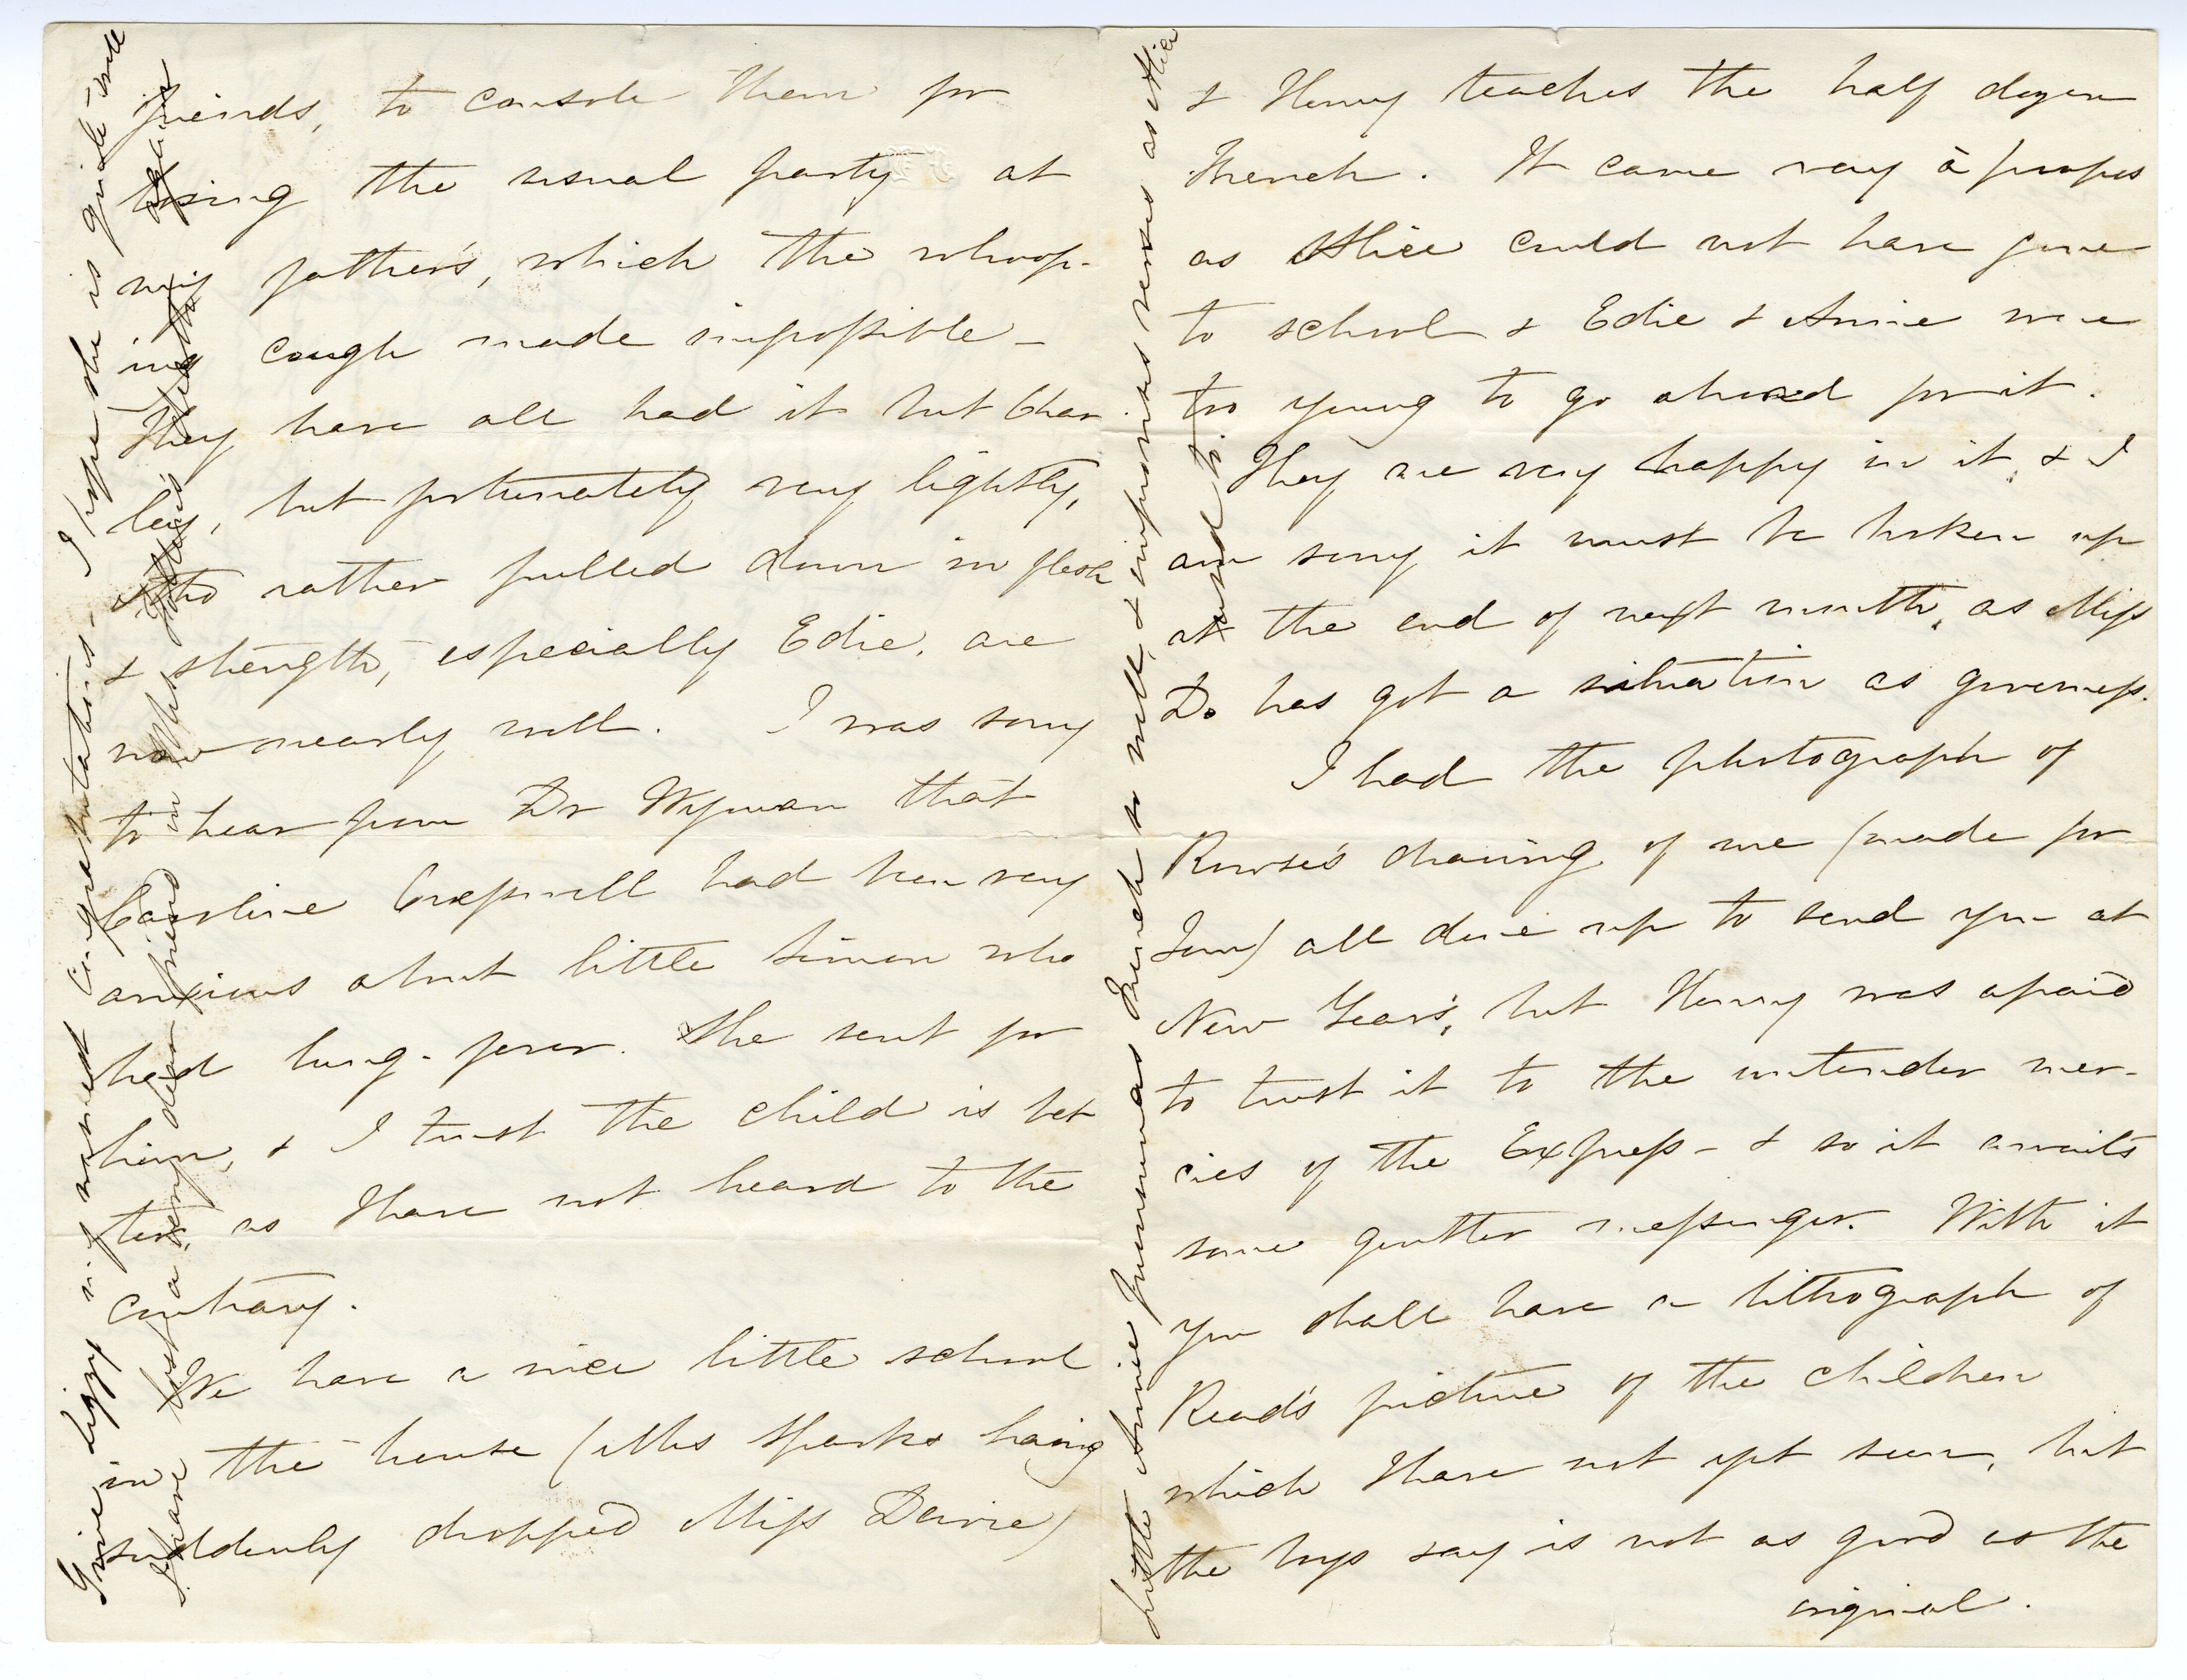 friends, to console them for
losing the usual party at
my father's, which the whoop-
ing cough made impossible –
They have all had it but Char
ley, but fortunately very lightly,
& tho rather pulled down in flesh
& strength, especially Edie, are
now nearly well. I was sorry
to hear from Dr Wyman that
Caroline Cresswell had been very
anxious about little Simon who
had lung-fever. She sent for
him, & I trust the child is bet
ter, as I have not heard to the
contrary.
We have a nice little school
in the house (Mrs Sparks having
suddenly dropped Miss Davie)
Give Lizzy my warmest congratulations – I hope she is quite well
I have lost a very dear friend in
again
& Henry teaches the half dozen
French. It came very à propos
as Alice could not have gone
to school & Edie & Annie were
too young to go abroad for it.
They are very happy in it, & I
am sorry it must be broken up
at the end of next month, as Miss
D. has got a situation as governess.
I had the photograph of
Rowse's drawing of me (made for
Tom) all done up to send you at
New Year's, but Henry was afraid
to trust it to the untender mer-
cies of the Express – & so it awaits
some gentler messenger. With it
you shall have a lithograph of
Read's picture of the children
which I have not yet seen, but
the boys say is not as good as the
original.
Little Annie pronounces French so well, & improvises verses as Alice
used to.